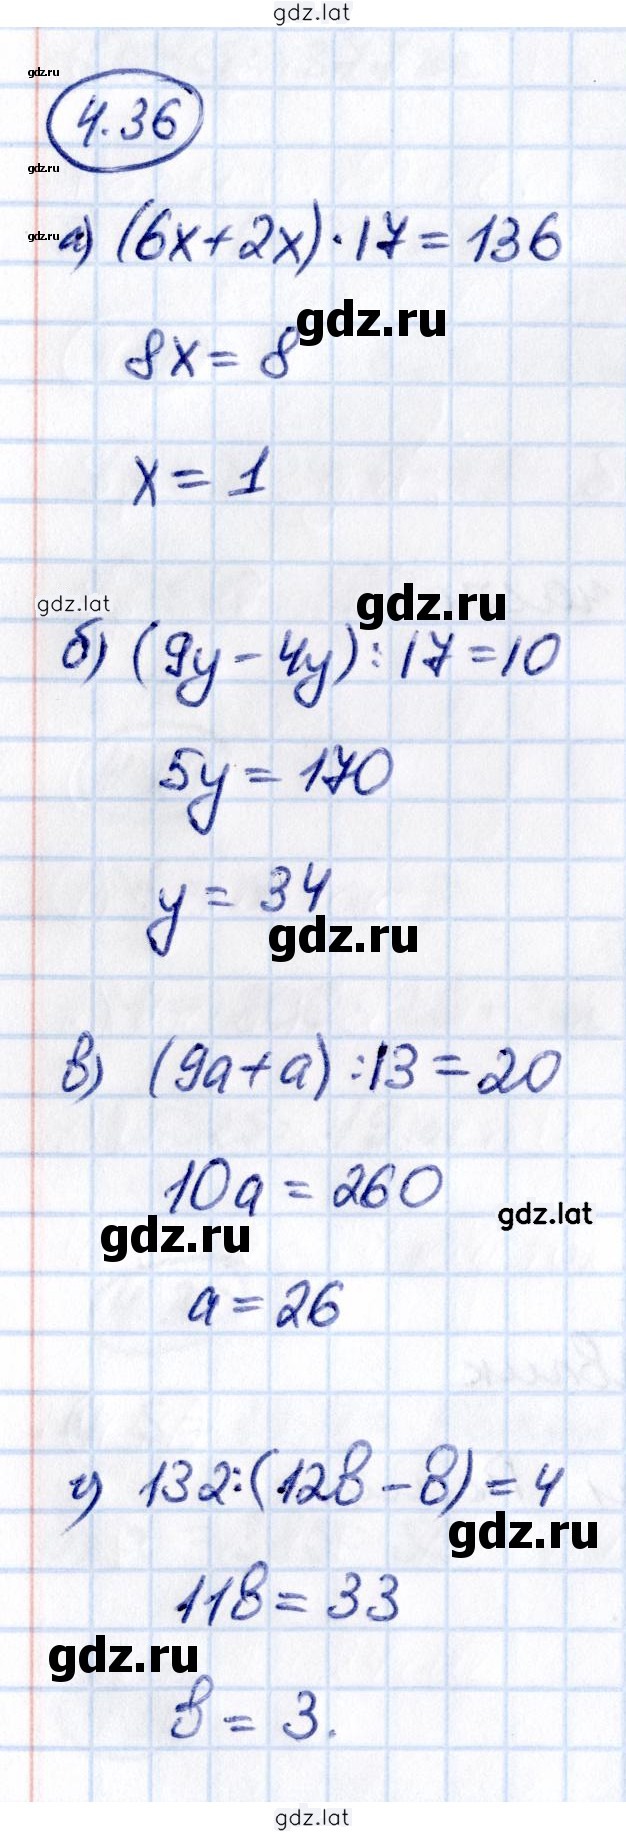 gdz.lat
gdz.ru
4.36
gdz.ru
gdz.ru
а) (6x+2x)·17=136
gdz.ru
8x=8
x=1
gdz.lat
gdz.ru
б) (9y-4y):17=10
5y=170
y=34
gdz.ru
в) (9a+a):13=20
10a=260
gdz.lat
gdz.ru
a=26
г) 132:(12в-в)=4
gdz.ru
11в=33
gdz.ru
в=3.
gdz.lat